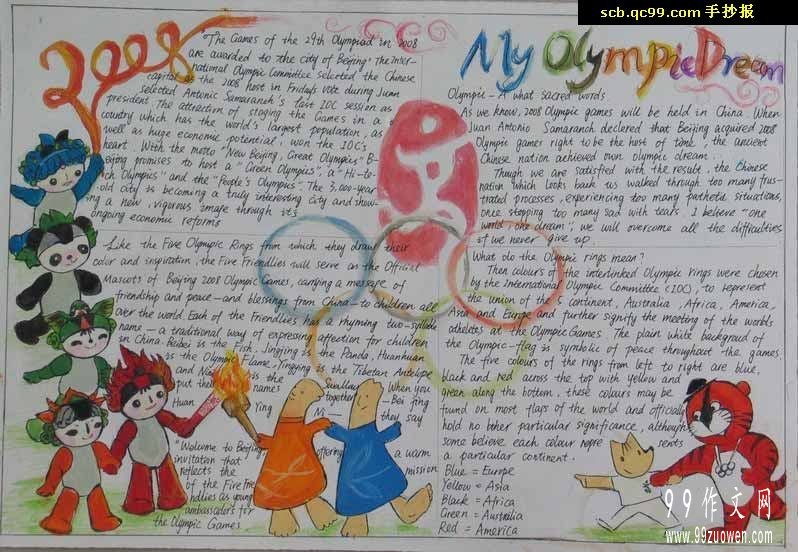 scb.qc99.com 手抄报
2008
My Olympic Dream
The Games of the 29th Olympiad in 2008
are awarded to the city of Beijing. The Inter-
national Olympic Committee selected the Chinese
capital as the 2008 host in Friday's vote during Juan
selected Antonic Samaranch's last IOC session as
president. The attraction of staging the Games in a
country which has the world's largest population, as
well as huge economic potential, won the IOC's
heart. With the motto "New Beijing, Great Olympics" B-
eijing promises to host a "Green Olympics", a "Hi-te-
ch Olympics" and the "People's Olympics". The 3,000-year
old city is becoming a truly interesting city and show-
ing a new, vigorous image through its
ongoing economic reforms
Like the Five Olympic Rings from which they draw their
color and inspiration, the Five Friendlies will serve as the Official
Mascots of Beijing 2008 Olympic Games, carrying a message of
friendship and peace—and blessings from China—to children all
over the world. Each of the Friendlies has a rhyming two-syllable
name—a traditional way of expressing affection for children
in China. Beibei is the Fish, Jingjing is the Panda, Huanhuan
is the Olympic Flame, Yingying is the Tibetan Antelope
and Ni is the Swallow When you
put their names together —Bei Jing
Huan Ying Ni— they say
"Welcome to Beijing" offering a warm
invitation that mission
reflects the
of the Five Frie
ndlies as young
ambassadors for
the Olympic Games
Olympic—A what sacred words
As we know, 2008 Olympic games will be held in China. When
Juan Antonio Samaranch declared that Beijing acquired 2008
Olympic games right to be the host of time, the ancient
Chinese nation achieved own olympic dream.
Though we are satisfied with the result, the Chinese
nation which looks back us walked through too many frus-
trated processes, experiencing too many pathetic situations,
once stopping too many sad with tears. I believe "one
world one dream", we will overcome all the difficulties
if we never give up.
What do the Olympic rings mean?
Then colours of the interlinked Olympic rings were chosen
by the International Olympic Committee (IOC), to represent
the union of the 5 continent, Australia, Africa, America,
Asia and Europe and further signify the meeting of the worlds
athelets at the Olympic Games. The plain white backgroud of
the Olympic-flag is symbolic of peace throughout the games.
The five colours of the rings from left to right are blue,
black and red across the top with yellow and
green along the bottom, these colours may be
fund on most flags of the world and officially
hold no other particular significance, although
some believe each colour repre sents
a particular continent.
Blue = Europe
Yellow = Asia
Black = Africa
Green = Australia
Red = America
99作文网
www.99zuowen.com